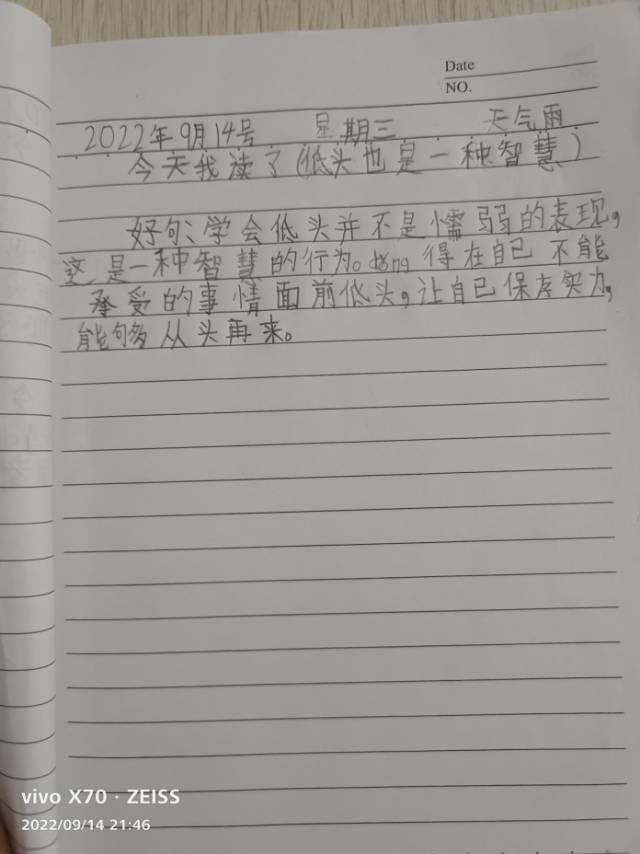 Date
NO.
2022年9月14号 星期三 天气雨
今天我读了(低头也是一种智慧)
好句:学会低头并不是懦弱的表现,
这是一种智慧的行为。dǒng得在自己不能
承受的事情面前低头,让自己保存实力,
能够从头再来。
vivo X70 · ZEISS
2022/09/14 21:46